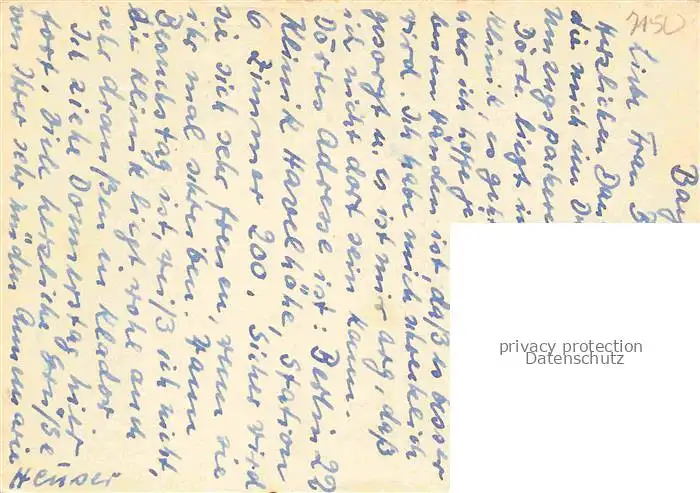 7150
Bay
Liebe Frau B
Herzlichen Dan
die mich im Dr
Umzugspacken
Dörte liegt in
Klinik, es geh
aber ich hoffe je
besten Händen ist, daß es besser
wird. Ich habe mich schrecklich
gesorgt u. es ist mir arg, daß
ich nicht dort sein kann.
Dörtes Adresse ist: Berlin 22
Klinik Havelhöhe, Station
6 Zimmer 200. Sicher wird
sie sich sehr freuen, wenn sie
ihr mal schreiben. Wann
Besuchstag ist, weiß ich nicht,
die Klinik liegt wohl auch
sehr draußen in Kladow
Ich ziehe Donnerstag hier
fort. Dich herzliche Grüße
von Ihrer sehr müden Annemarie
Heuser
privacy protection
Datenschutz